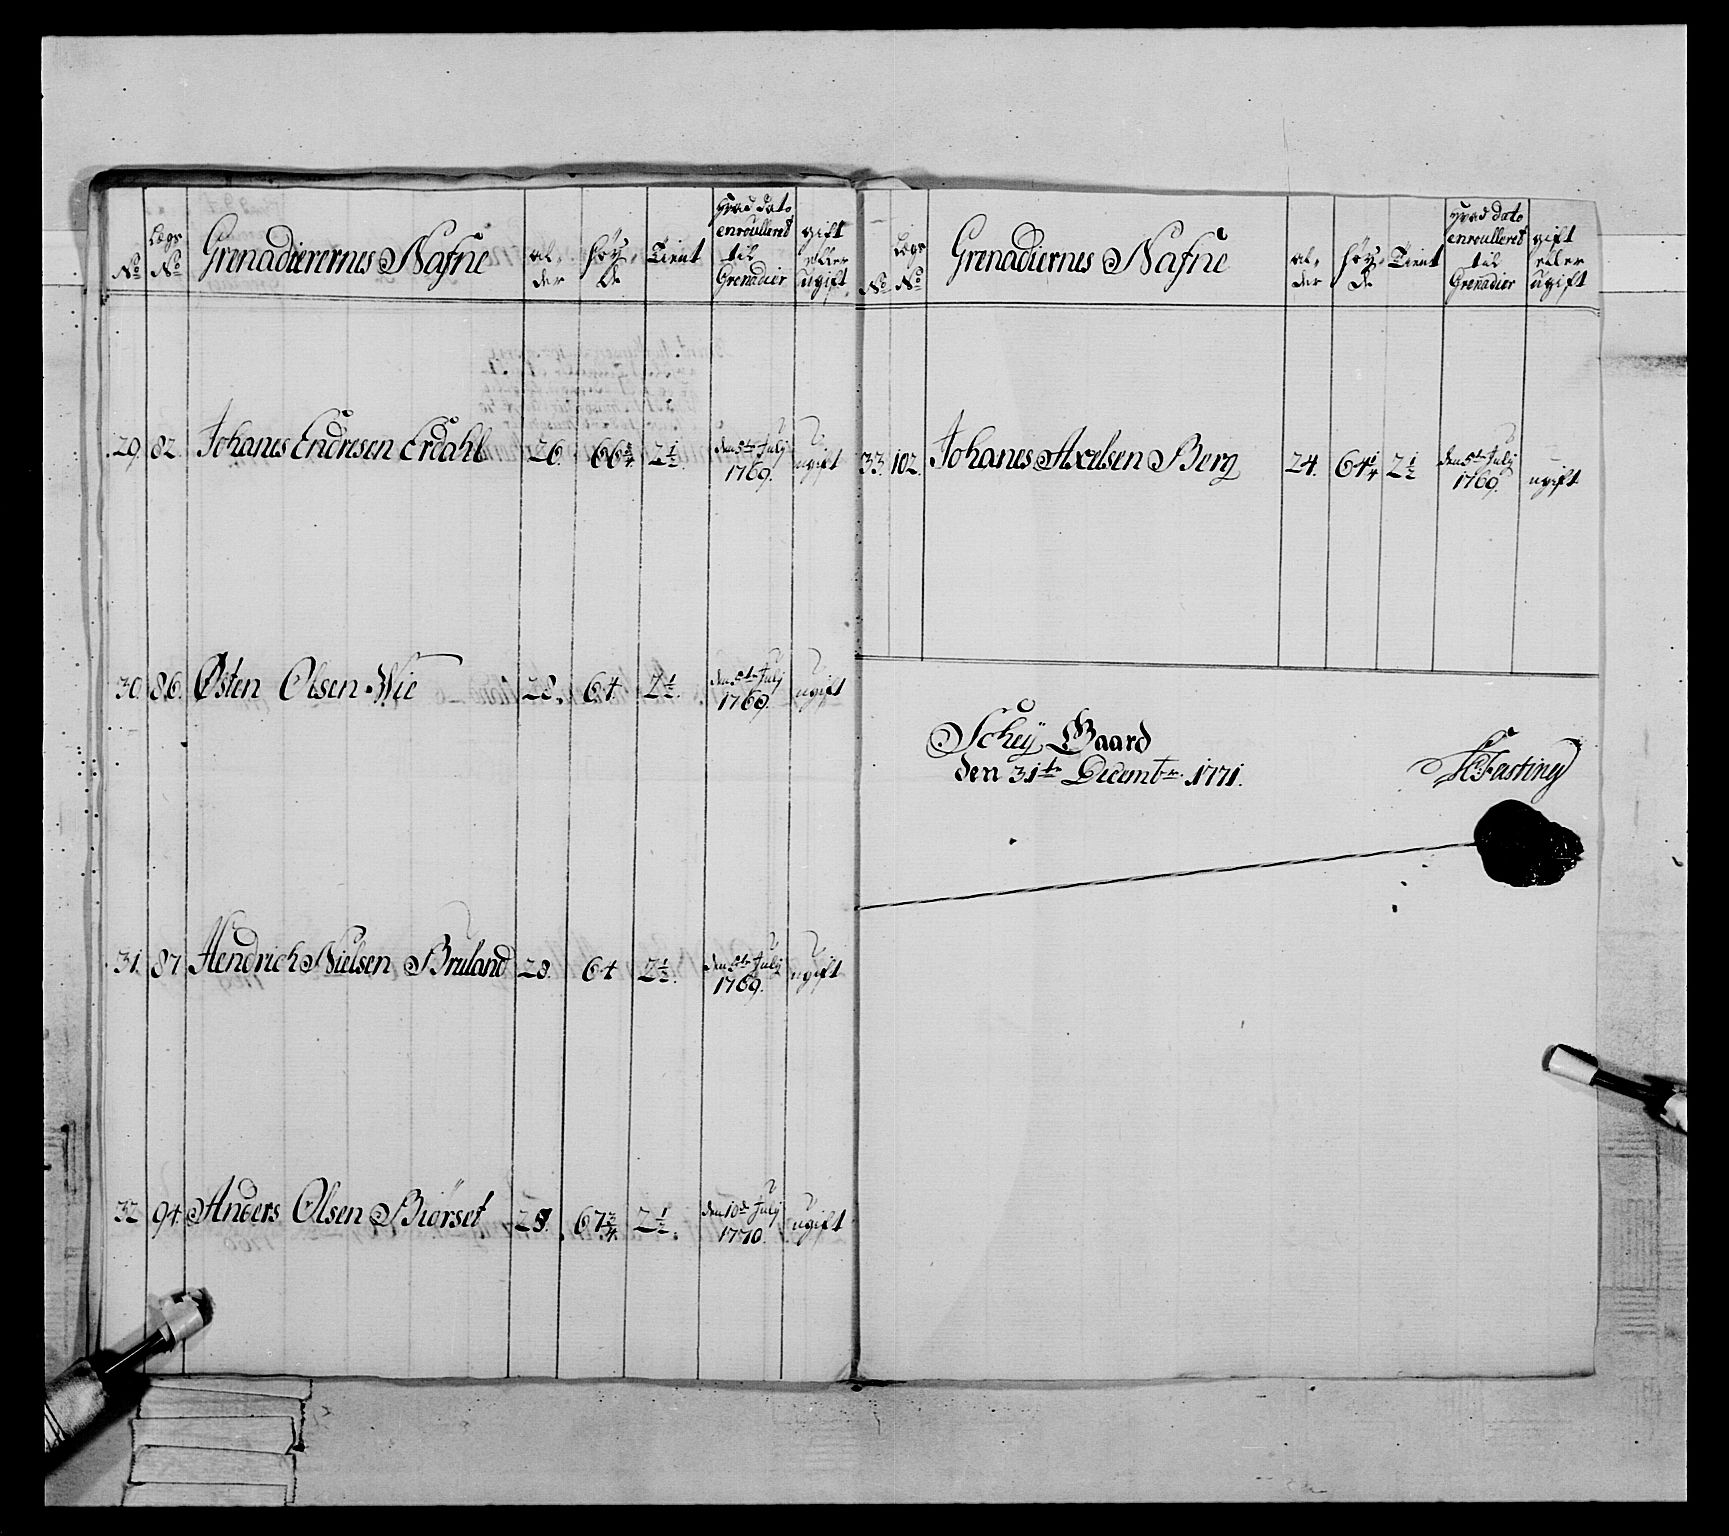 No
Lægs No
Grenadierernes Nafne
al,
der
Høy,
de
Tient
hvad dato
enroulleret
til
Grenadier
gift
eller
ugift
29. 82. Johanes Endresen Erdahl 26. 66 3/4 2 1/2. den 5te July 1769. ugift
30. 86. Østen Olsen Wie 28. 64. 2 1/2. den 5te July 1769. ugift
31. 87 Hendrich Nielsen Bruland 28. 64 2 1/2. den 5te July 1769. ugift
32 94. Anders Olsen Biørset 28. 67 3/4. 2 1/2. den 10de July 1770. ugift
No
Lægs No
Grenadiernes Nafne
al,
der
høy,
de
Tient
hvad dato
enroulleret
til
Grenadier
gift
eller
ugift
33. 102. Johanes Axelsen Berg 24. 64 1/4 2 1/2 den 5te July 1769. ugift
Schey Gaard
den 31te Decembr. 1771.
Fasting